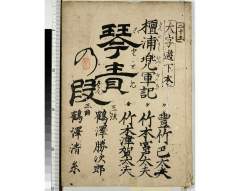 大字遊下本
壇浦兜軍記
琴責
の段
豊竹巴太夫
竹本宮太夫
竹本津賀太夫
三弦
鶴澤勝次郎
鶴澤清糸